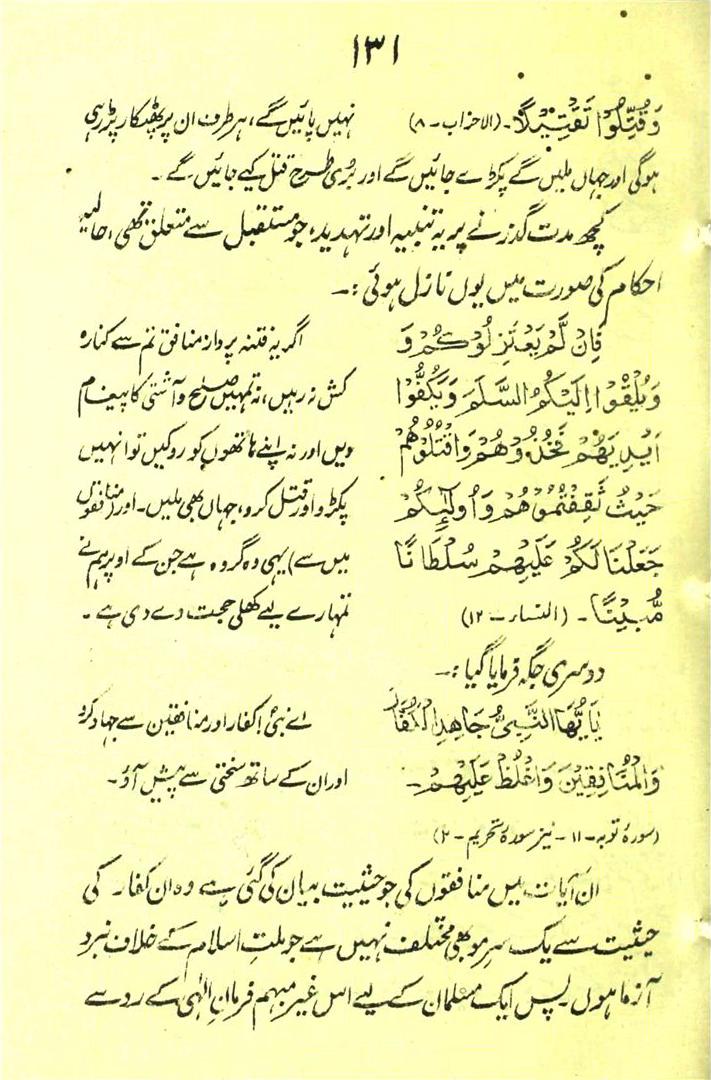 ۱۳۱
وَقُتِّلُوْا تَقْتِيْلًا۔ (الاحزاب - ۸) نہیں پائیں گے، ہر طرف ان پر پھٹکار پڑ رہی
ہوگی اور جہاں ملیں گے پکڑے جائیں گے اور بُری طرح قتل کیے جائیں گے۔
کچھ مدت گذرنے پر یہ تنبیہ اور تہدید، جو مستقبل سے متعلق تھی، حالیہ
احکام کی صورت میں یوں نازل ہوئی :-
فَاِنْ لَّمْ يَعْتَزِلُوْكُمْ وَ اگر یہ فتنہ پرداز منافق تم سے کنارہ
وَيُلْقُوْا اِلَيْكُمُ السَّلَمَ وَيَكُفُّوْا کش نہ رہیں، نہ تمہیں صلح و آشتی کا پیغام
اَيْدِيَهُمْ فَخُذُوْهُمْ وَاقْتُلُوْهُمْ دیں اور نہ اپنے ہاتھوں کو روکیں تو انہیں
حَيْثُ ثَقِفْتُمُوْهُمْ وَاُولٰٓئِكُمْ پکڑو اور قتل کرو، جہاں بھی ملیں۔ اور (منافقوں
جَعَلْنَا لَكُمْ عَلَيْهِمْ سُلْطَانًا میں سے) یہی وہ گروہ ہے جن کے اوپر ہم نے
مُّبِيْنًا۔ (النساء - ۱۲) تمہارے لیے کھلی حجت دے دی ہے۔
دوسری جگہ فرمایا گیا :-
يٰاَيُّهَا النَّبِىُّ جَاهِدِ الْكُفَّارَ اے نبیؐ! کفار اور منافقین سے جہاد کرو
وَالْمُنَافِقِيْنَ وَاغْلُظْ عَلَيْهِمْ۔ اور ان کے ساتھ سختی سے پیش آؤ۔
(سورۂ توبہ - ۱۱ - نیز سورۂ تحریم - ۲)
ان آیات میں منافقوں کی جو حیثیت بیان کی گئی ہے وہ ان کفار کی
حیثیت سے یک سرِ مو بھی مختلف نہیں ہے جو ملتِ اسلامیہ کے خلاف نبرد
آزما ہوں۔ پس ایک مسلمان کے لیے اس غیر مبہم فرمانِ الٰہی کے رو سے